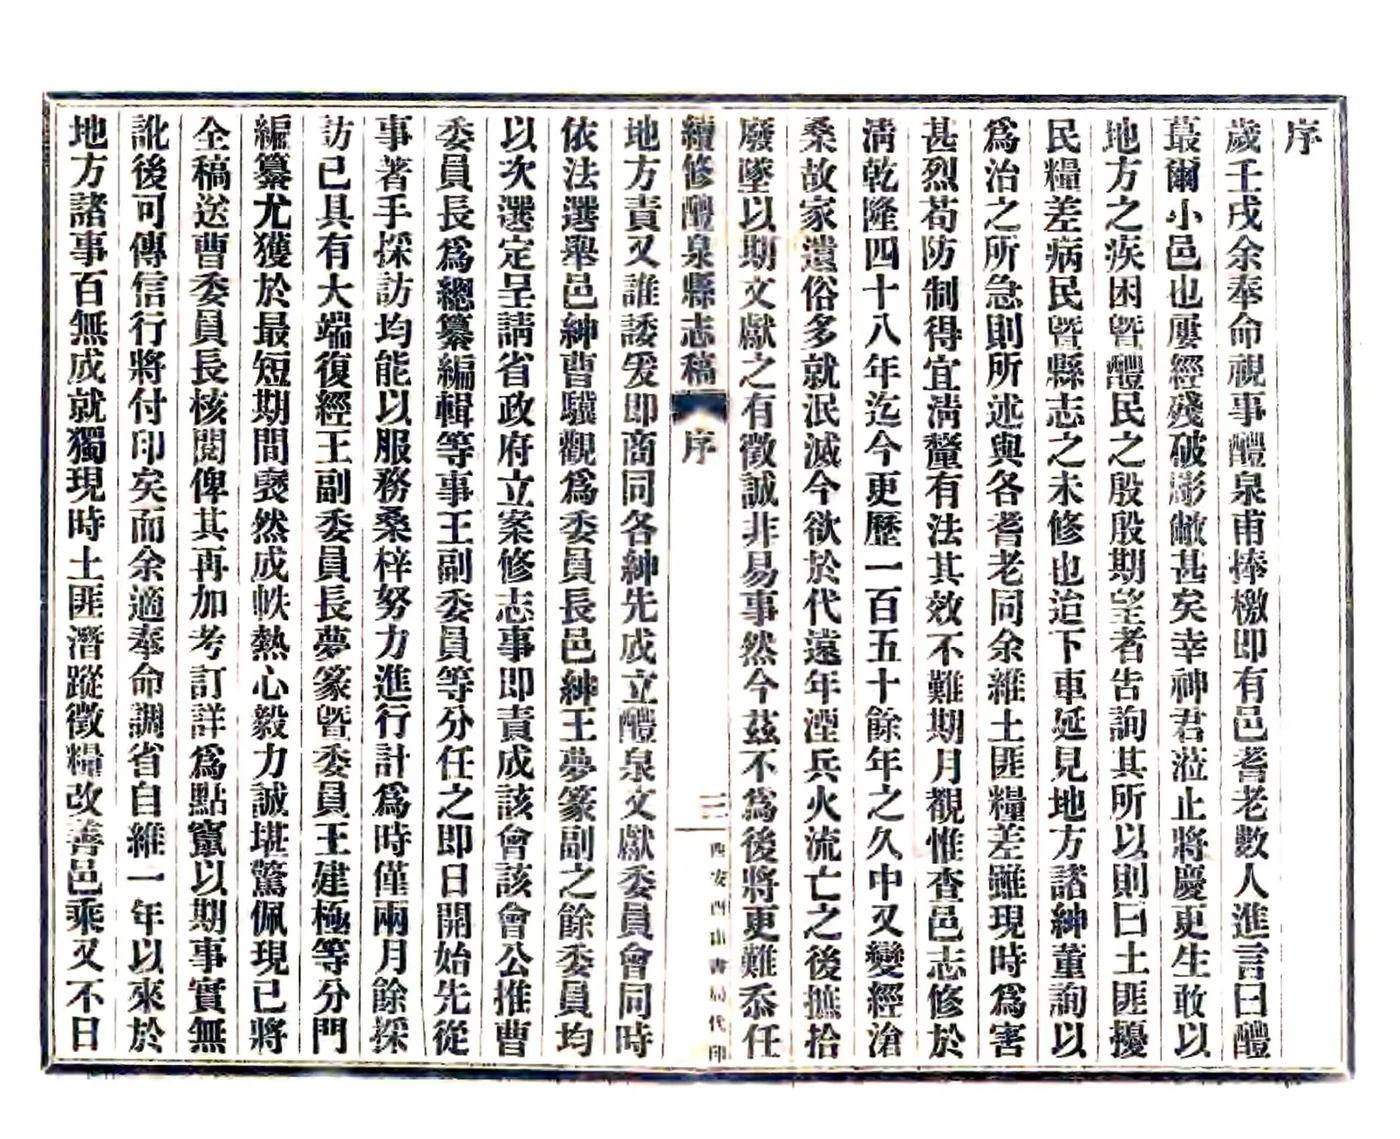 序
歲壬戌余奉命視事醴泉甫捧檄即有邑耆老數人進言曰醴
蕞爾小邑也屢經殘破彫敝甚矣幸神君蒞止將慶更生敢以
地方之疾困曁醴民之殷殷期望者告詢其所以則曰土匪擾
民糧差病民曁縣志之未修也迨下車延見地方諸紳董詢以
爲治之所急則所述與各耆老同余維土匪糧差雖現時爲害
甚烈苟防制得宜淸釐有法其效不難期月覩惟查邑志修於
淸乾隆四十八年迄今更歷一百五十餘年之久中又變經滄
桑故家遺俗多就泯滅今欲於代遠年湮兵火流亡之後摭拾
廢墜以期文獻之有徵誠非易事然今茲不爲後將更難忝任
續修醴泉縣志稿 序 三 西安酉山書局代印
地方責又誰諉爰即商同各紳先成立醴泉文獻委員會同時
依法選舉邑紳曹驥觀爲委員長邑紳王夢篆副之餘委員均
以次選定呈請省政府立案修志事即責成該會該會公推曹
委員長爲總纂編輯等事王副委員等分任之即日開始先從
事著手採訪均能以服務桑梓努力進行計爲時僅兩月餘採
訪已具有大端復經王副委員長夢篆曁委員王建極等分門
編纂尤獲於最短期間褎然成帙熱心毅力誠堪驚佩現已將
全稿送曹委員長核閱俾其再加考訂詳爲點竄以期事實無
訛後可傳信行將付印矣而余適奉命調省自維一年以來於
地方諸事百無成就獨現時土匪潛蹤徵糧改善邑乘又不日